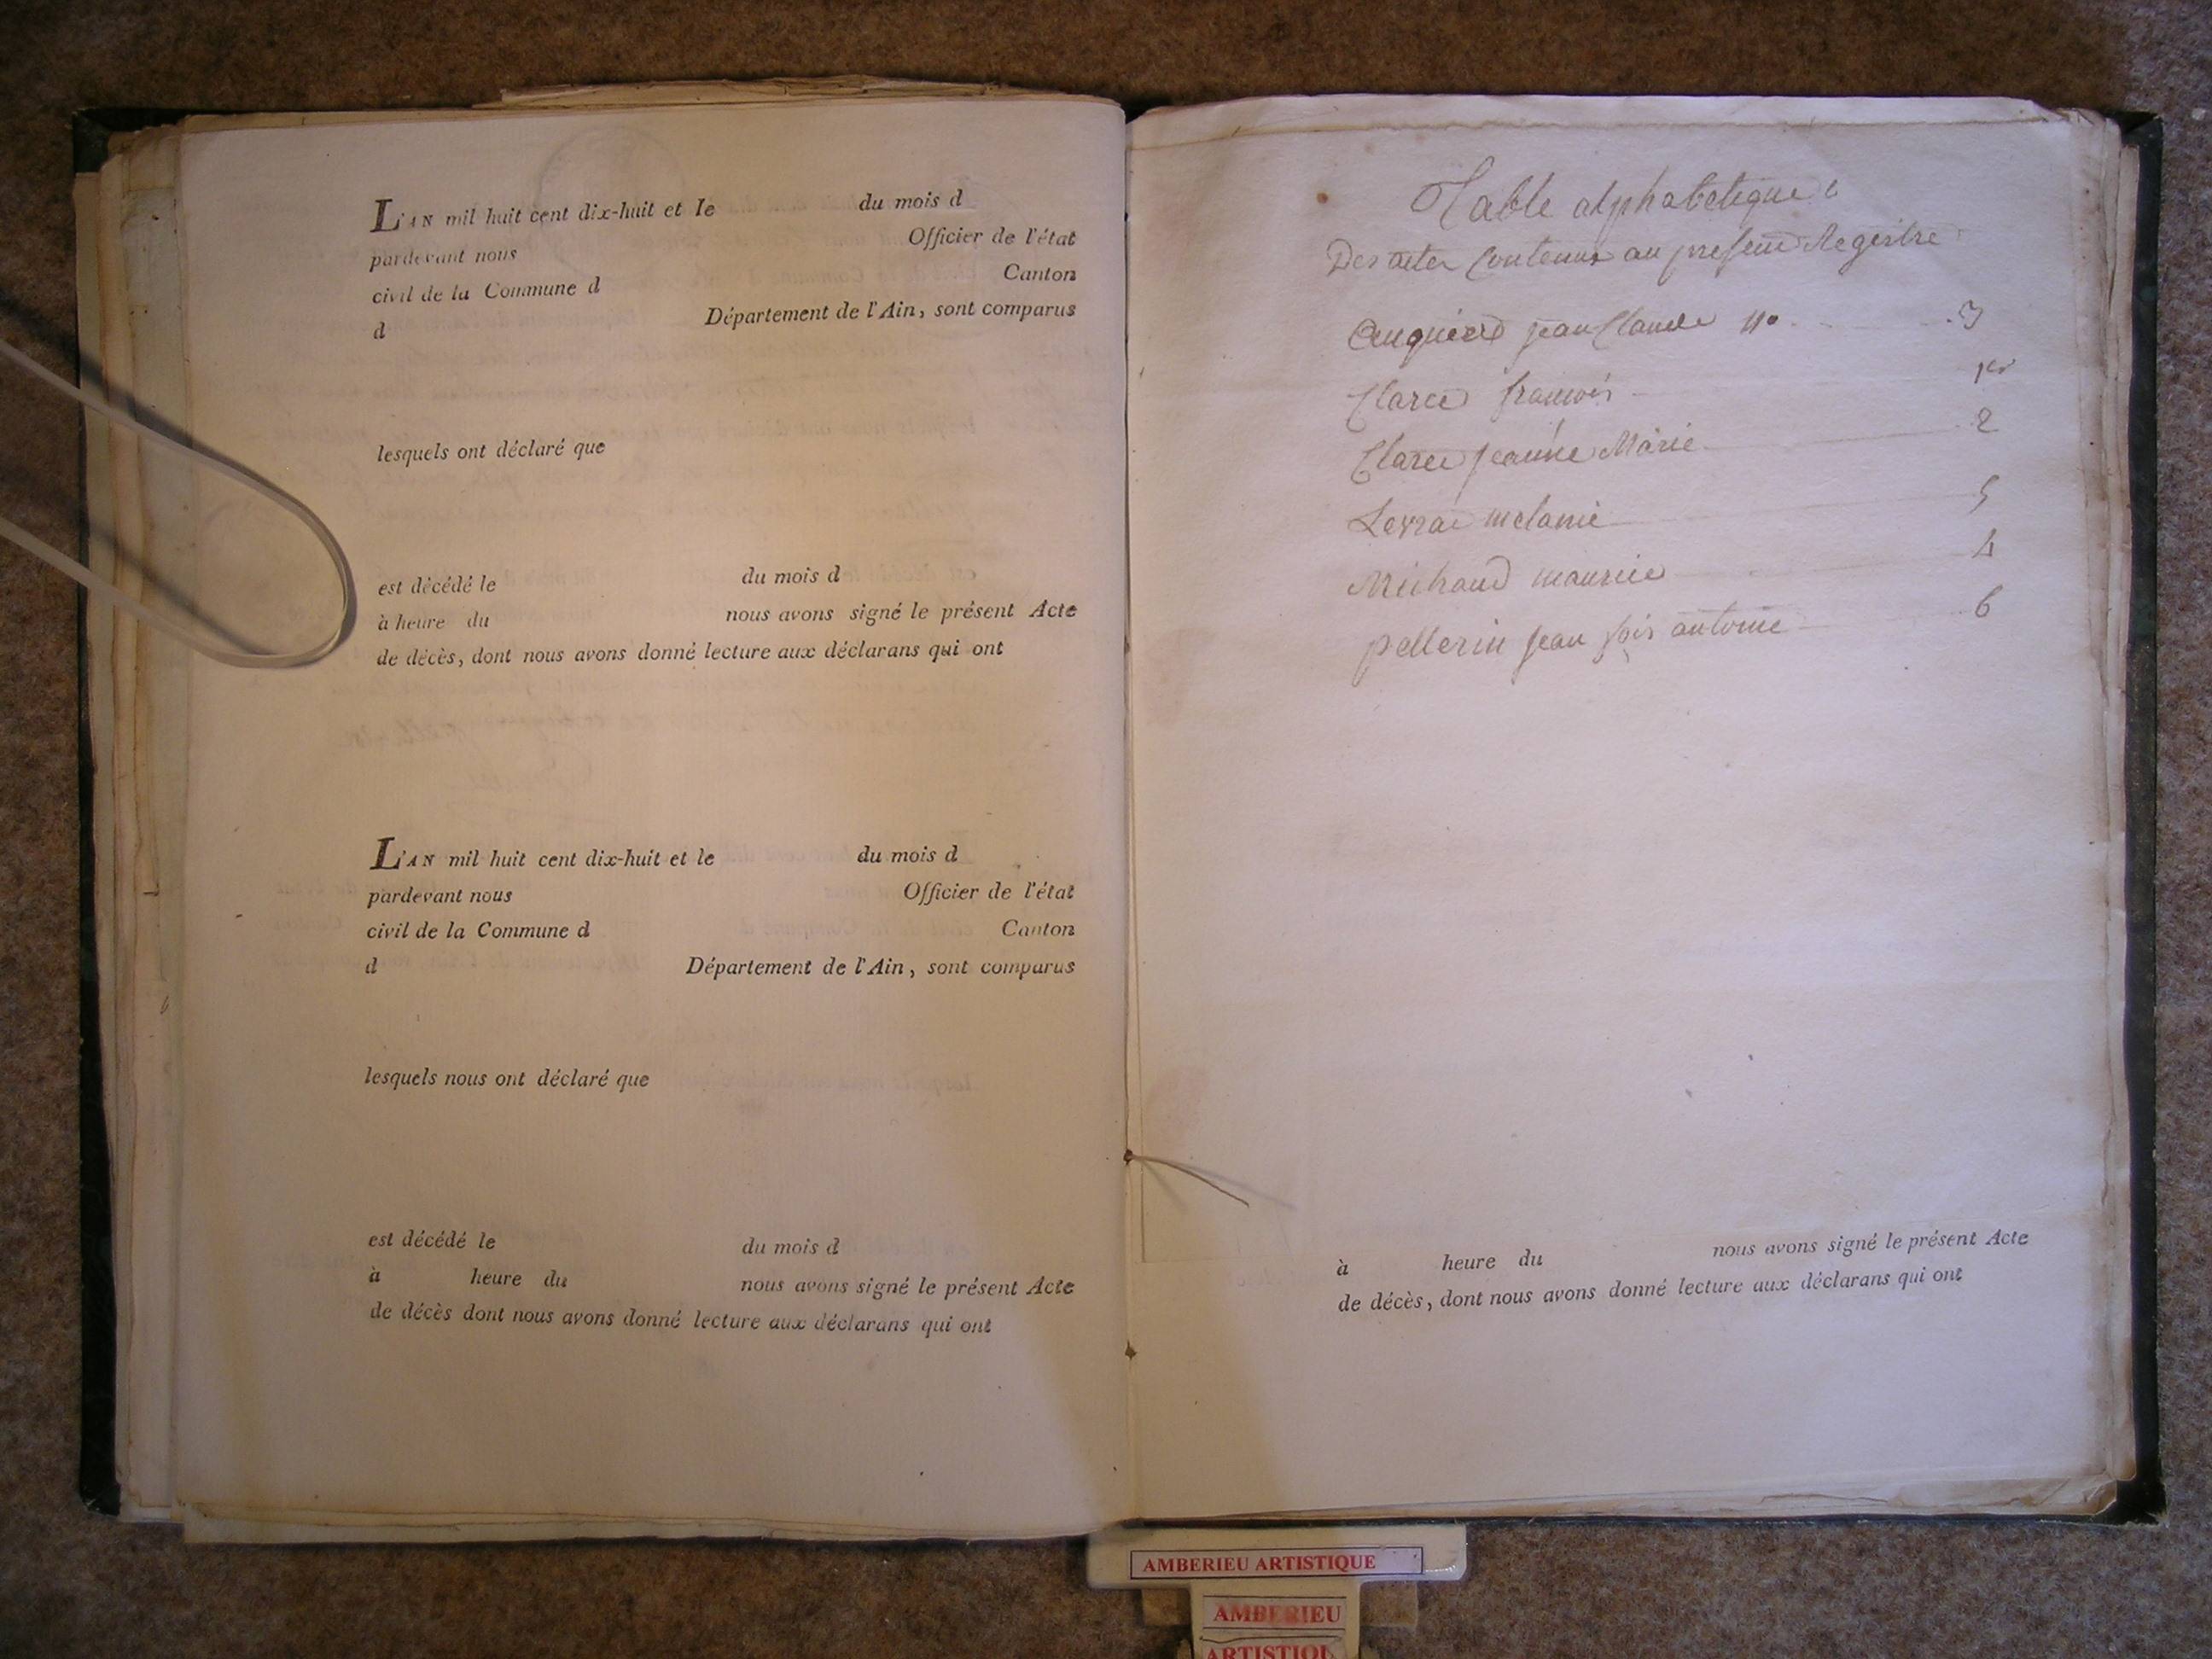 L'AN mil huit cent dix-huit et le du mois d
pardevant nous Officier de l'état
civil de la Commune d Canton
d Département de l'Ain, sont comparus
lesquels ont déclaré que
est décédé le du mois d
à heure du nous avons signé le présent Acte
de décès, dont nous avons donné lecture aux déclarans qui ont
L'AN mil huit cent dix-huit et le du mois d
pardevant nous Officier de l'état
civil de la Commune d Canton
d Département de l'Ain, sont comparus
lesquels nous ont déclaré que
est décédé le du mois d
à heure du nous avons signé le présent Acte
de décès dont nous avons donné lecture aux déclarans qui ont
Table alphabetique
Des actes Contenus au present Registre
jean Claude no 3
Claret francois 1er
Claret jeanne Marie 2
Levrat melanie 5
Michaud maurice 4
pellerin jean fois antoine 6
à heure du nous avons signé le présent Acte
de décès, dont nous avons donné lecture aux déclarans qui ont
AMBERIEU ARTISTIQUE
AMBERIEU